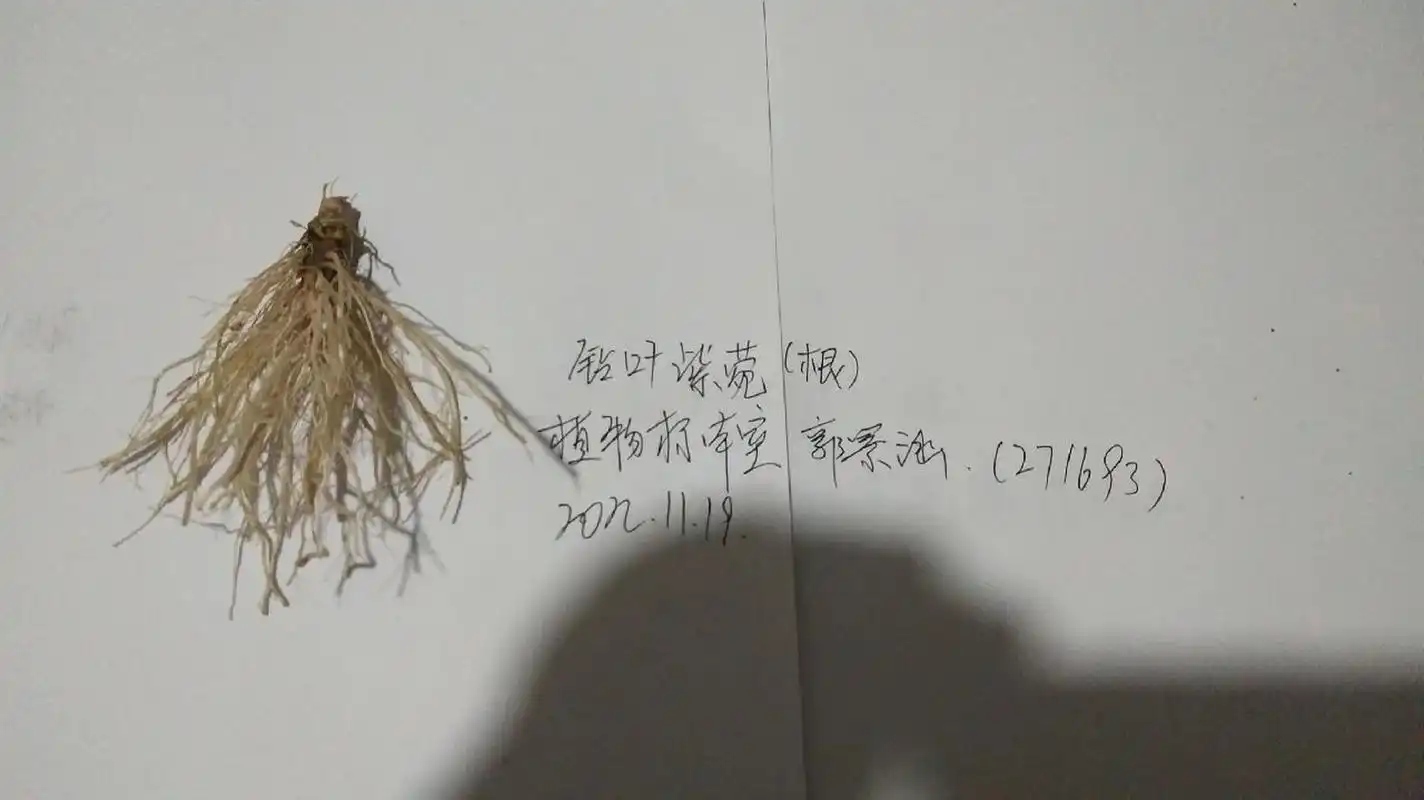 叶紫菀(根)
植物标本室 郭景涵.(271693)
2022.11.19.